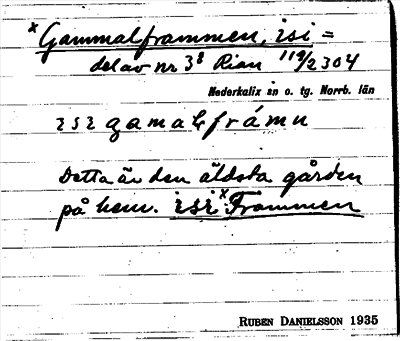 *Gammalframmen, isi =
del av nr 3⁸ Rian 119/2304
Nederkalix sn o. tg. Norrb. län
ısı gamalfrámn
Detta är den äldsta gården
på hem. isi *Frammen
RUBEN DANIELSSON 1935